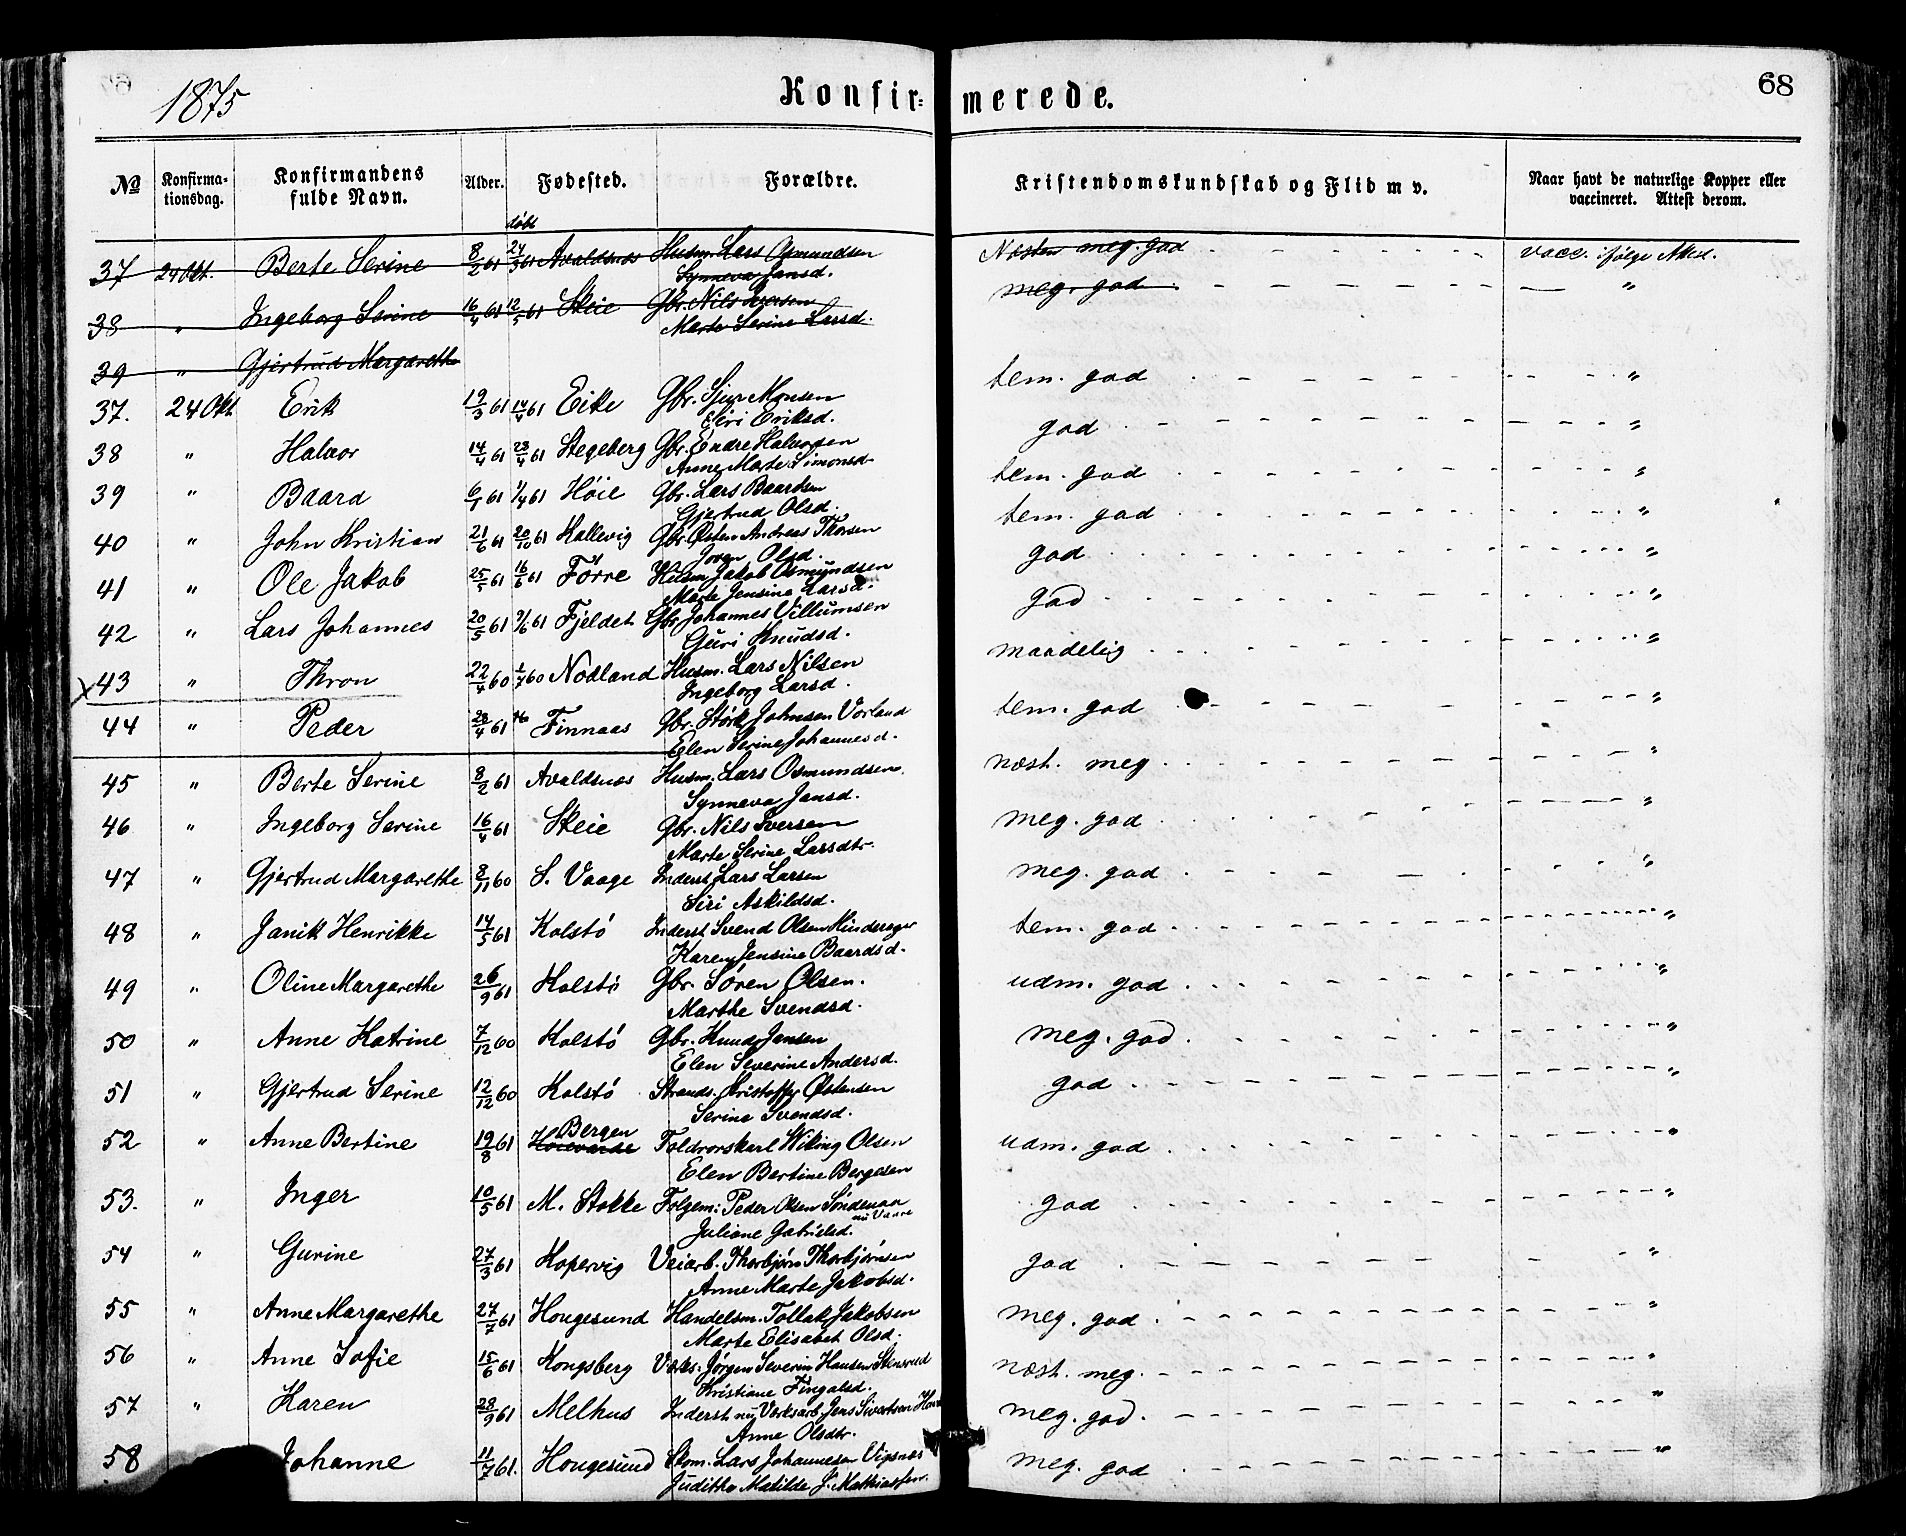 1875 Konfir= merede. 68
№ Konfirma= tionsdag. Konfirmandens fulde Navn. Alder. Fødested. Forældre. Kristendomskundskab og Flid m v. Naar havt de naturlige Kopper eller vaccineret. Attest derom.
døbt
37 24 Okt. Berte Serine 8/2 61 24/3 61 Avaldsnæs Husm. Lars Osmundsen Næsten meg. god vacc. ifølge Attest.
Synneva Jansd.
38 " Ingeborg Serine 16/4 61 12/5 61 Skeie Gbr. Nils Iversen meg. god "
Marte Serine Larsd.
39 " Gjertrud Margarethe
37. 24 Okt Erik 19/3 61 14/4 61 Eike Gbr. Sjur Monsen tem. god "
Siri Eriksd.
38 " Halvor 14/4 61 23/4 61 Stegeberg Gbr. Endre Halvorsen god "
Anne Marte Simonsd
39 " Baard 61 61 Høie Gbr. Lars Baardsen tem. god "
Gjertrud Olsd.
40 " John Kristian 21/6 61 20/10 61 Kallevig Gbr. Østen Andreas Thorsen tem. god "
Joren Olsd.
41 " Ole Jakob 25/5 61 16/6 61 Førre Husm. Jakob Osmundsen god "
Marte Jensine Larsd.
42 " Lars Johannes 20/5 61 9/6 61 Fjeldet Gbr. Johannes Villumsen god "
Guri Knudsd.
43 " Thron 22/4 60 1/7 60 Nodland Husm. Lars Nilsen maadelig "
Ingeborg Larsd.
44 " Peder 28/4 61 Finnaas Gbr. Størk Johnsen Vorland tem. god "
Elen Serine Johannesd.
45 " Berte Serine 8/2 61 Avaldsnæs Husm. Lars Osmundsen. næst. meg "
Synneva Jansd.
46 " Ingeborg Serine 16/4 61 Skeie Gbr. Nils Iversen meg. god "
Marte Serine Larsdtr.
47 " Gjertrud Margarethe 8/11 60 S. Vaage Inderst Lars Larsen meg. god "
Siri Askildsd.
48 " Janik Henrikke 14/5 61 Kolstø Inderst Svend Olsen tem. god "
Karen Jensine Baardsd.
49 " Oline Margarethe 26/9 61 Kolstø Gbr. Søren Olsen. udm. god "
Marthe Svendsd.
50 " Anne Katrine 7/12 60 Kolstø Gbr. Knud Jensen meg. god "
Elen Severine Andersd.
51 " Gjertrud Serine 12/12 60 Kolstø Strands. Kristoffer Østensen god "
Serina Svendsd.
52 " Anne Bertine 19/8 61 Bergen Toldrorskarl Wiking Olsen udm. god "
Elen Bertine Bergesen
53. " Inger 10/5 61 M. Stokke Folgem: Peder Olsen god "
Juliane Gabrielsd.
54 " Gurine 27/3 61 Kopervig Veiarb. Thorbjørn Thorbjørnsen god "
Anne Marte Jakobsd.
55 " Anne Margarethe 27/7 61 Hougesund Handelsm. Tollak Jakobsen meg. god "
Marte Elisabet Olsd.
56 " Anne Sofie 15/6 61 Kongsberg Værks. Jørgen Severin Hansen Stensrud næst. meg. "
Kristiane Fingalsd.
57 " Karen 28/9 61 Melhus Inderst nu Værksarb. Jens Sivertsen meg. god. "
Anne Olsdtr.
58 Johanne 11/7 61. Hougesund Skom. Lars Johannesen Vigsnæs meg. god "
Juditha Matilde S. Mathiassen.